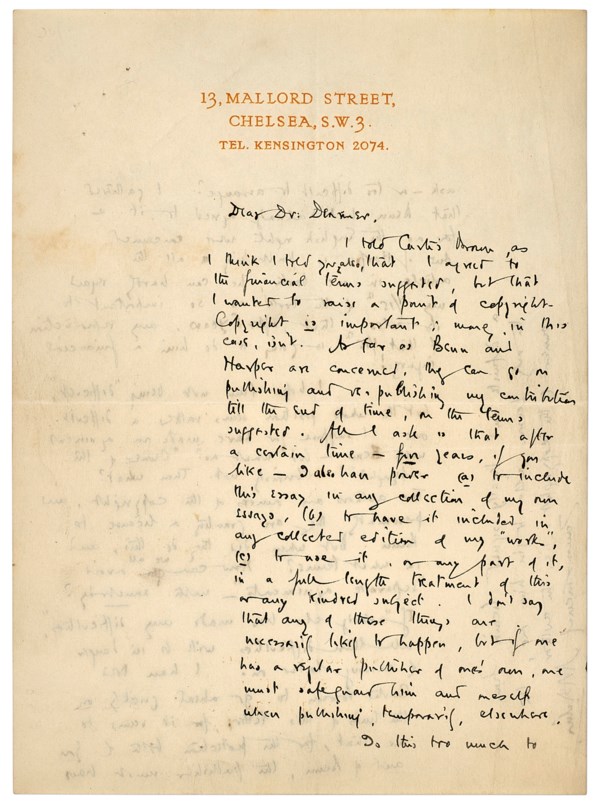 13, MALLORD STREET,
CHELSEA, S.W.3.
TEL. KENSINGTON 2074.
Dear Dr: Dearmer,
I told Curtis Brown, as
I think I told you also, that I agreed to
the financial terms suggested, but that
I wanted to raise a point of copyright.
Copyright is important; money, in this
case, isn't. As far as Benn and
Harper are concerned, they can go on
publishing and re-publishing my contribution
till the end of time, on the terms
suggested. All I ask is that after
a certain time — five years, if you
like — I shall have power (a) to include
this essay in any collection of my own
essays, (b) to have it included in
any collected edition of my "works",
(c) to use it, or any part of it,
in a full length treatment of this
or any kindred subject. I don't say
that any of these things are
necessarily likely to happen, but if one
has a regular publisher of one's own, one
must safeguard him and oneself
when publishing, temporarily, elsewhere.
Is this too much to